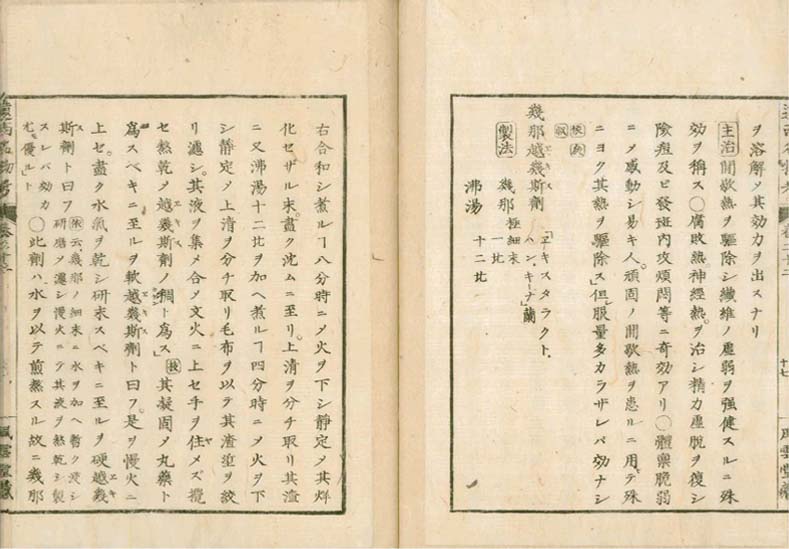 ヲ溶解メ其効力ヲ出スナリ
主治 間歇熱ヲ驅除シ纖維ノ虚弱ヲ強健スルニ殊
効ヲ稱ス○腐敗熱神經熱ヲ治シ精力虚脱ヲ復シ
險痘及ヒ發斑内攻煩悶等ニ奇効アリ○體稟脆弱
ニメ感動シ易キ人頑固ノ間歇熱ヲ患ルニ用テ殊
ニヨク其熱ヲ驅除ス但服量多カラザレバ効ナシ
幾那越幾斯劑 エキス
「エキスタラクト、ハン、キーナ」蘭
製法 幾那 極細末 一匕
沸湯 十二匕
十七
右合和シ煮ルヿ八分時ニメ火ヲ下シ靜定メ其烊
化セザル末盡ク沈ムニ至リ上清ヲ分チ取リ其渣
ニ又沸湯十二匕ヲ加ヘ煮ルヿ四分時ニメ火ヲ下
シ靜定メ上清ヲ分チ取リ毛布ヲ以テ其渣滓ヲ絞
リ濾シ其液ヲ集メ合メ文火ニ上セ手ヲ住メズ攪
セ熱乾メ越幾斯劑ノ稠ト爲ス 其凝固メ丸藥ト
爲スベキニ至ルヲ軟越幾斯劑ト曰フ是ヲ慢火ニ
上セ盡ク水氣ヲ乾シ研末スベキニ至ルヲ硬越幾
斯劑ト曰フ 云幾那ノ細末ニ水ヲ加ヘ暫ク浸シ
研磨メ濾シ慢火ニテ其液ヲ熬乾シ製
スレバ効力尤優ルト ○此劑ハ水ヲ以テ煎熬スル故ニ幾那